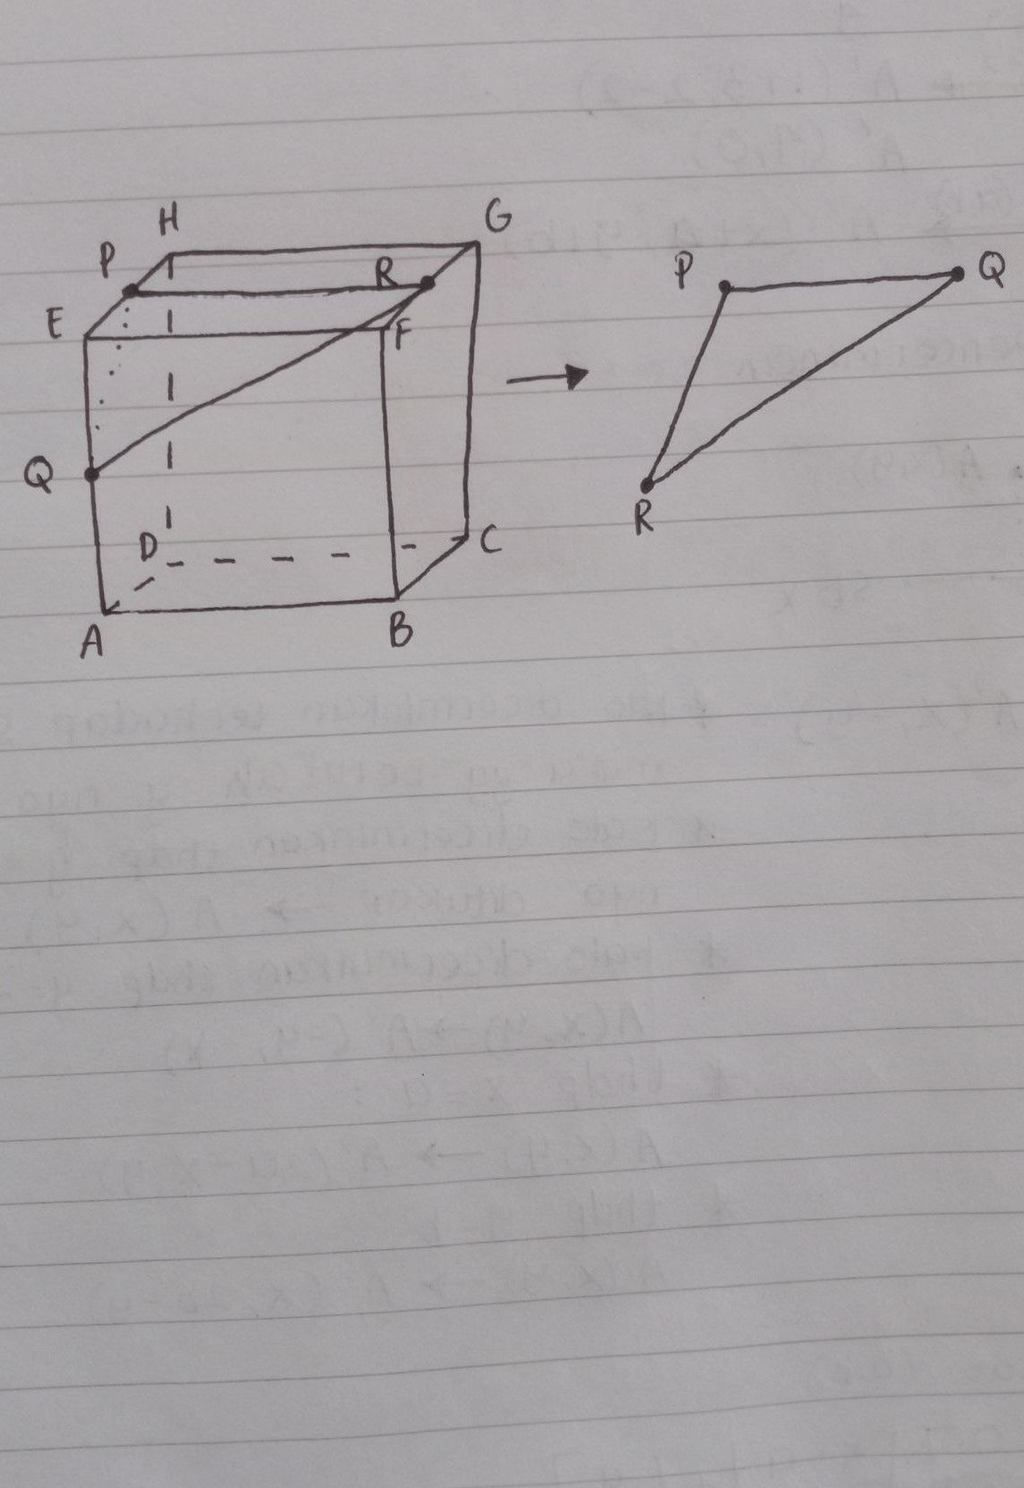 H
G
P
R
E
F
Q
D
C
A
B
P
Q
R